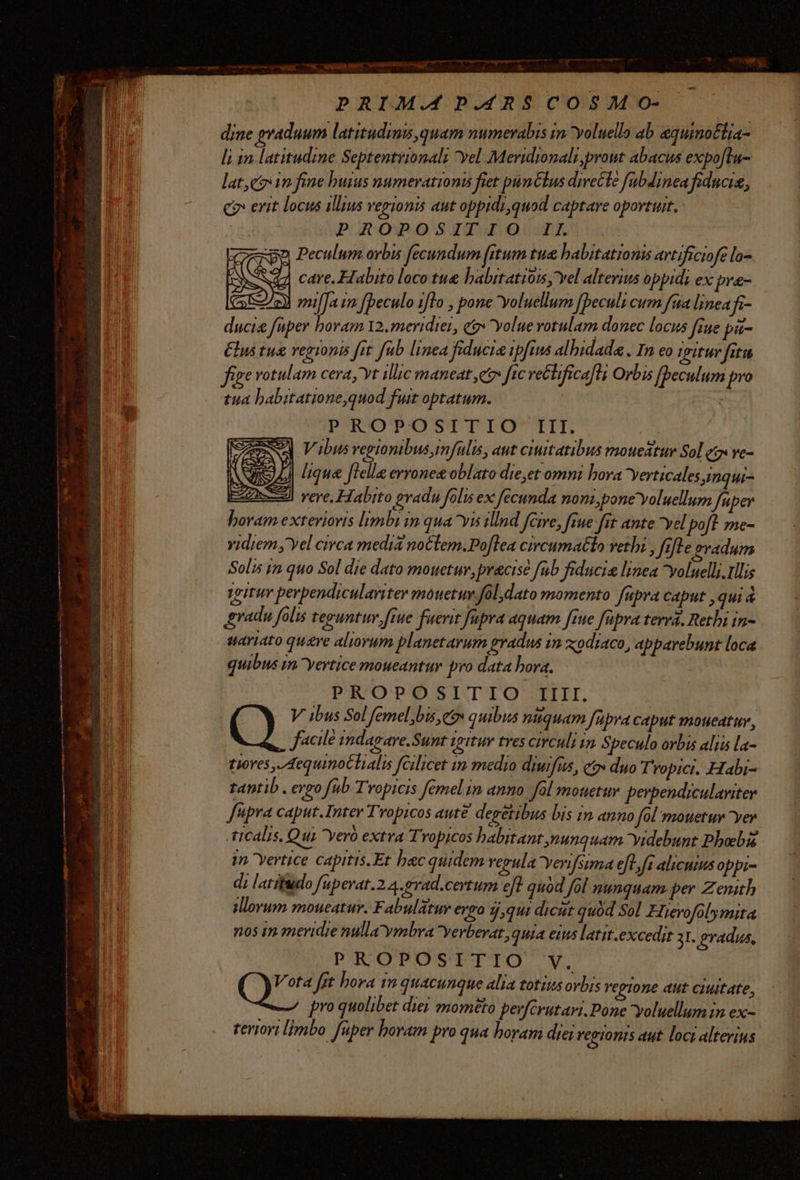 PRIMA PARS COSMO-
dine graduum latitudinis, quam numerabis in voluello ab æquinoctia-
li in latitudine Septentrionali vel Meridionali, prout abacus expostu-
lat, & in fine huius numerationis fiet pũnctus directe sub linea fiduciæ,
& erit locus illius regionis aut oppidi, quod captare oportuit.
PROPOSITIO II.
SPeculum orbis secundum situm tuæ habitationis artificiose lo-
care. Habito loco tuæ habitatiõis, vel alterius oppidi ex præ-
missa in speculo isto, pone voluellum speculi cum sua linea fi-
duciæ super horam 12. meridiei, & volue rotulam donec locus siue pũ-
ctus tuæ regionis sit sub linea fiduciæ ipsius alhidadæ. In eo igitur situ
fige rotulam cera, vt illic maneat, & sic rectificasti Orbis speculum pro
tua habitatione, quod fuit optatum.
PROPOSITIO III.
QVibus regionibus, insulis, aut ciuitatibus moueãtur Sol & re-
liquæ stellæ erroneæ oblato die, et omni hora verticales, inqui-
rere. Habito gradu solis ex secunda noni, pone voluellum super
horam exterioris limbi in qua vis illud scire, siue sit ante vel post me-
ridiem, vel circa mediã noctem. Postea circumacto rethi, siste gradum
Solis in quo Sol die dato mouetur, præcisè sub fiduciæ linea voluelli. Illis
igitur perpendiculariter mouetur sol, dato momento supra caput, qui à
gradu solis teguntur, siue fuerit supra aquam siue supra terrã. Rethi in-
uariato quære aliorum planetarum gradus in zodiaco, apparebunt loca
quibus in vertice moueantur pro data hora.
PROPOSITIO IIII.
QVibus Sol semel, bis, & quibus nũquam supra caput moueatur,
facilè indagare. Sunt igitur tres circuli in Speculo orbis aliis la-
tiores, Aequinoctialis scilicet in medio diuisus, & duo Tropici. Habi-
tantib. ergo sub Tropicis semel in anno sol mouetur perpendiculariter
supra caput. Inter Tropicos autẽ degẽtibus bis in anno sol mouetur ver
ticalis. Qui verò extra Tropicos habitant, nunquam videbunt Phœbũ
in vertice capitis. Et hæc quidem regula verissima est, si alicuius oppi-
di latitudo superat. 24. grad. certum est quòd sol nunquam per Zenith
illorum moueatur. Fabulãtur ergo ij, qui dicũt quòd Sol Hierosolymita
nos in meridie nulla vmbra verberat, quia eius latit. excedit 31. gradus,
PROPOSITIO V.
QVota sit hora in quacunque alia totius orbis regione aut ciuitate,
pro quolibet diei momẽto perscrutari. Pone voluellum in ex-
teriori limbo super horam pro qua horam diei regionis aut loci alterius